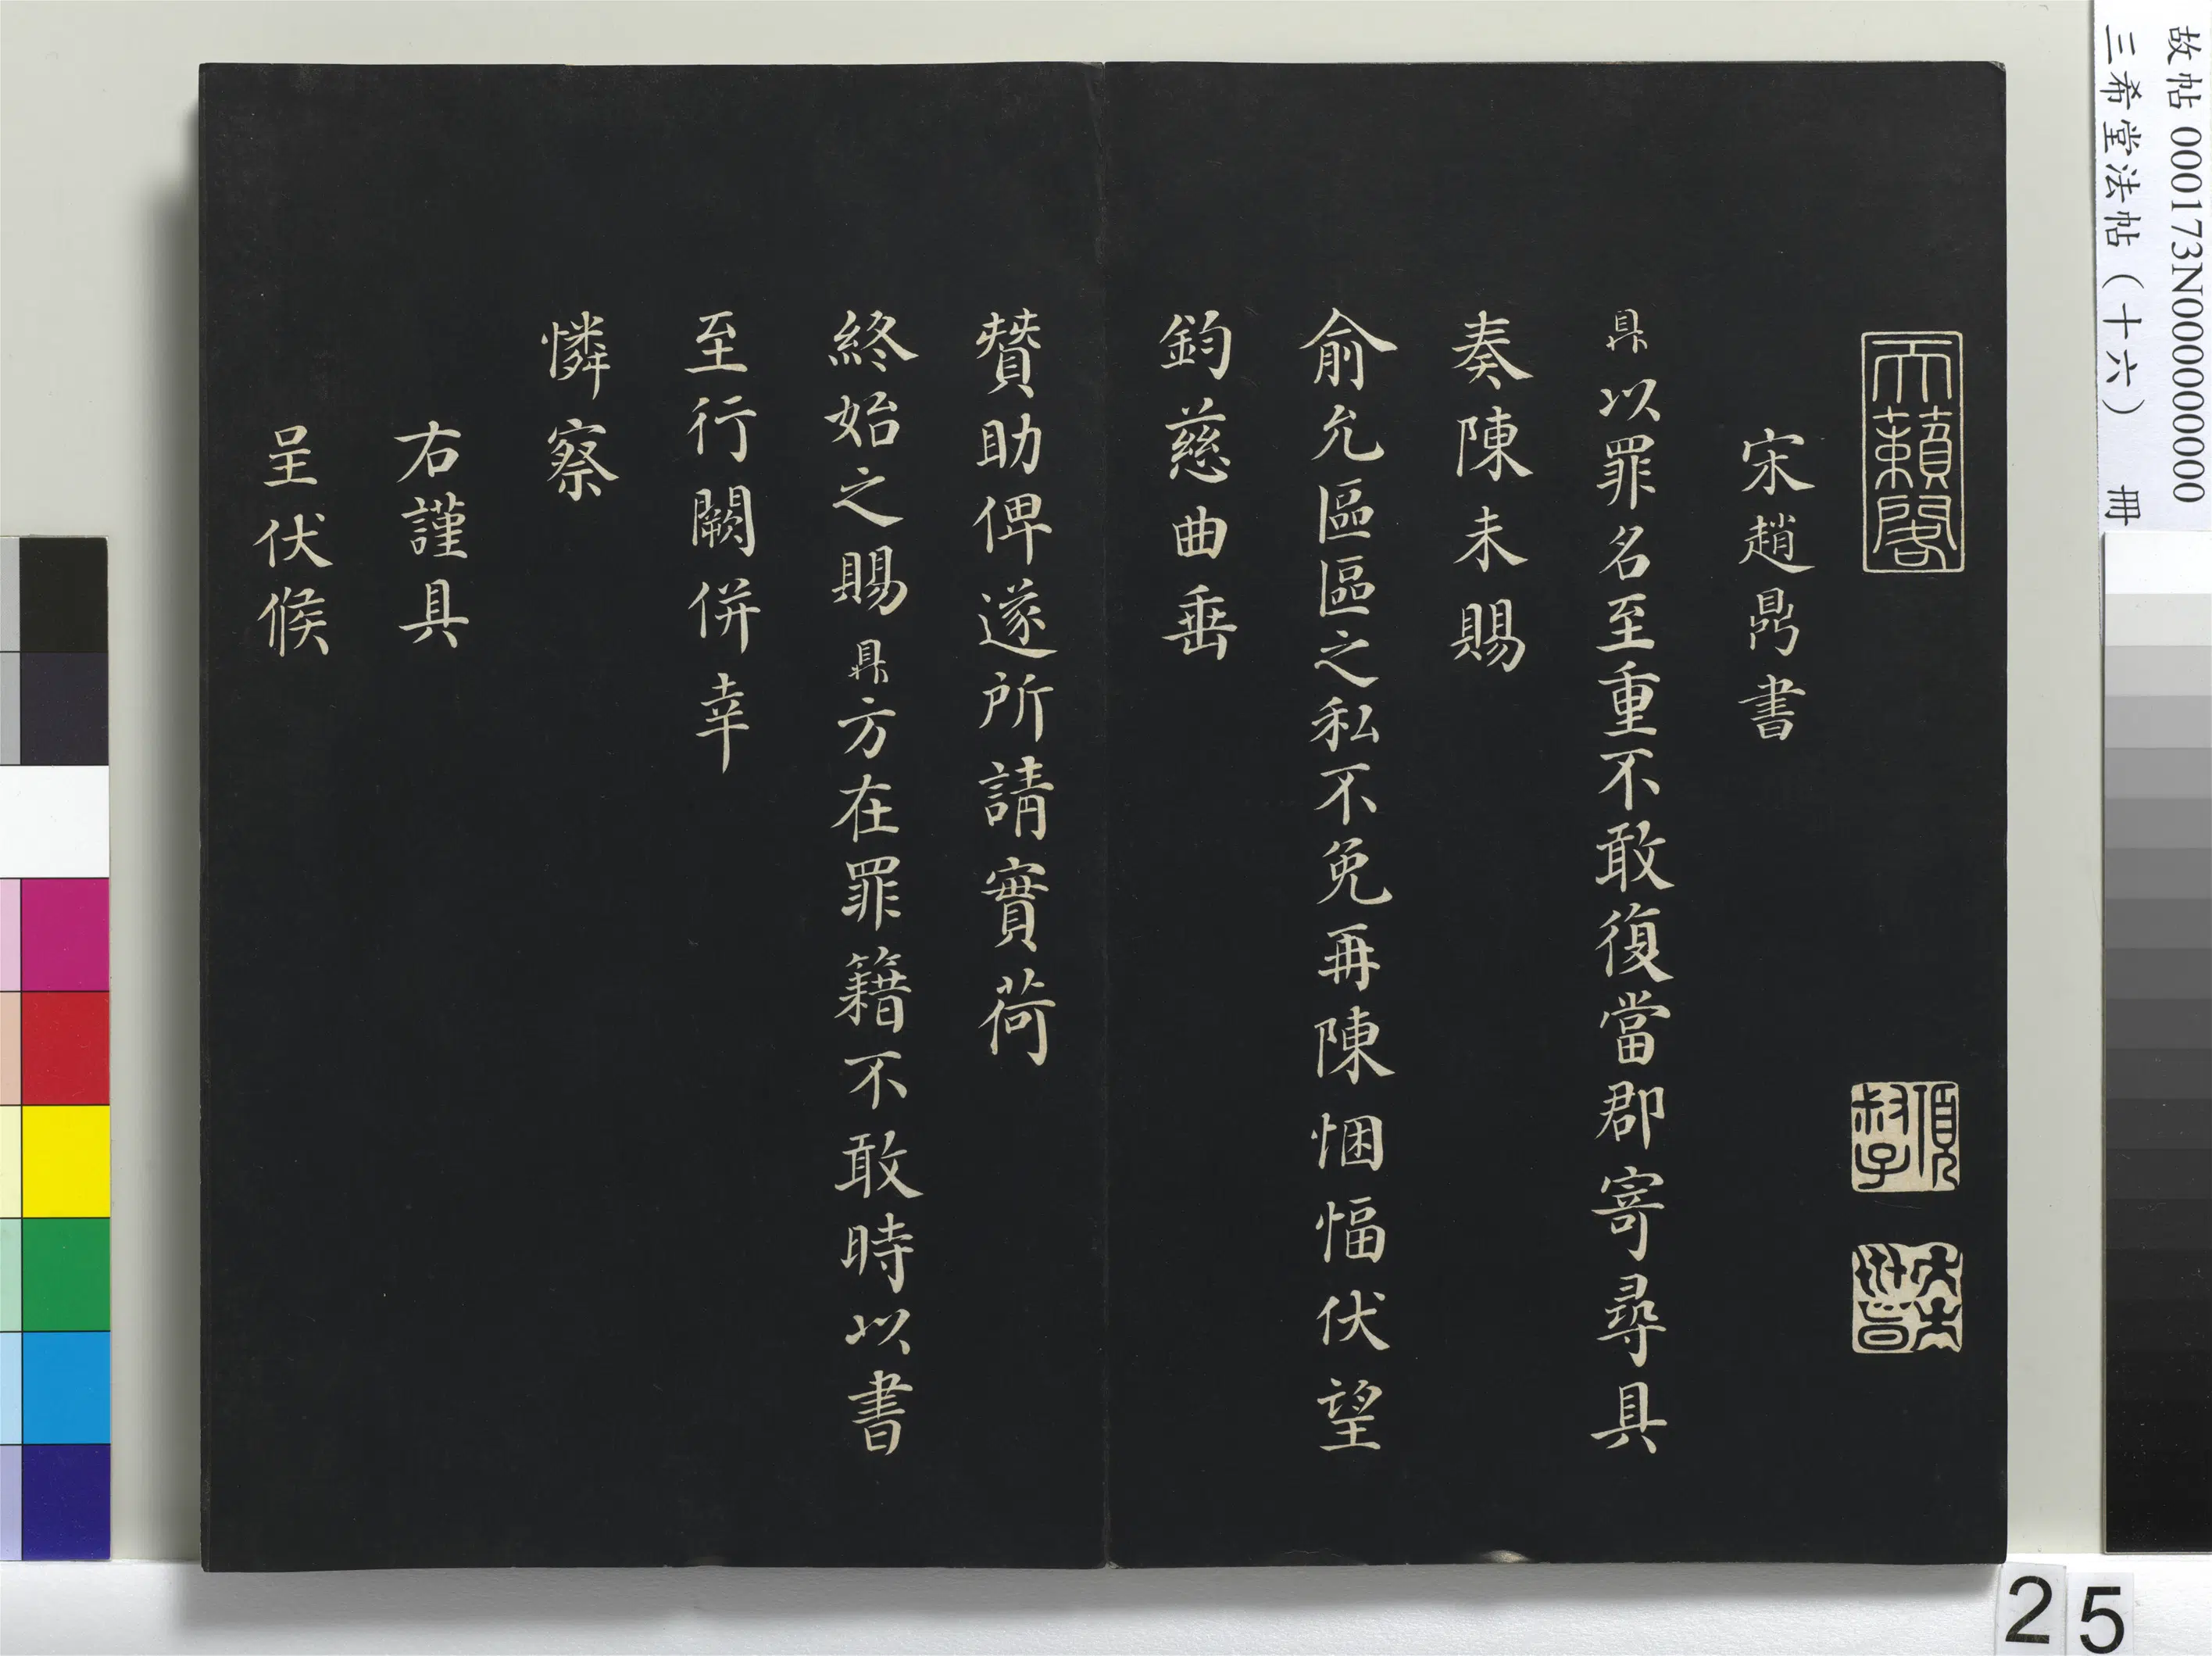 故帖 000173N000000000
三希堂法帖（十六） 冊
天籟閣
項叔子
宋趙鼎書
鼎以罪名至重不敢復當郡寄尋具
奏陳未賜
俞允區區之私不免再陳悃愊伏望
鈞慈曲垂
贊助俾遂所請實荷
終始之賜鼎方在罪籍不敢時以書
至行闕併幸
憐察
右謹具
呈伏候
25